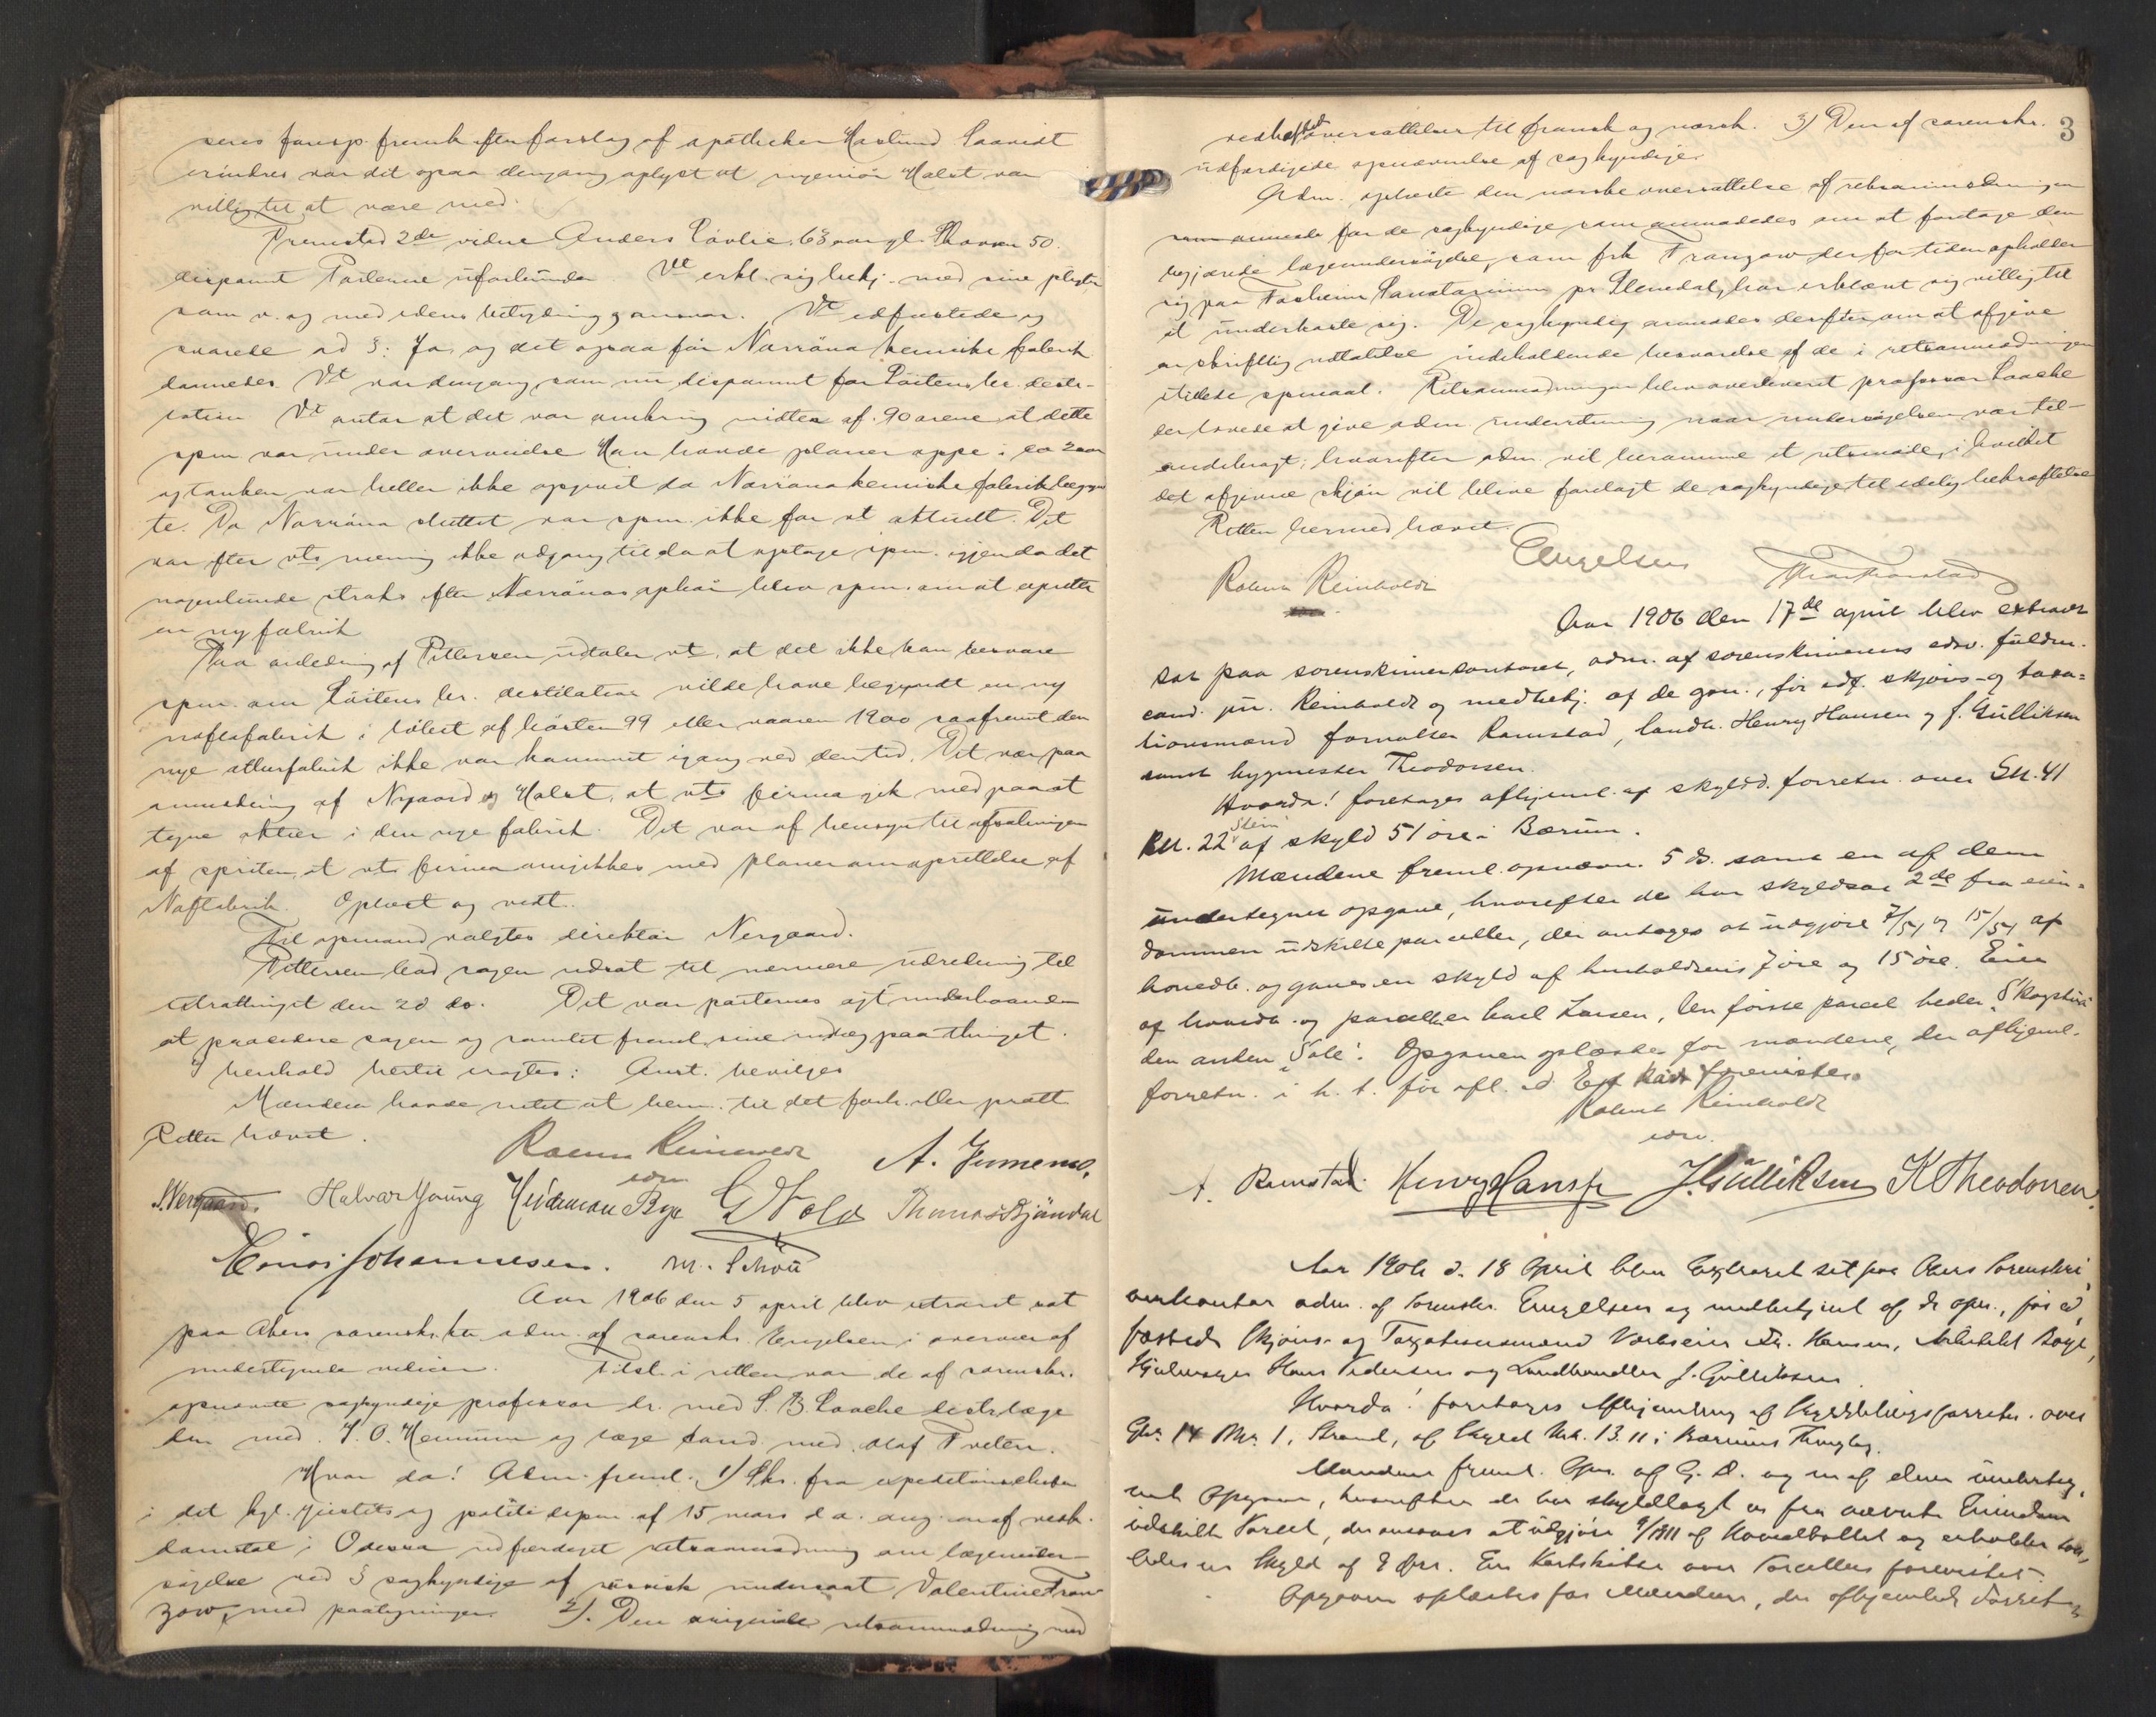 seres foresp. fremk efter forslag af apotheker Haslund Saavidt
erindres var det ogsaa dengang oplyst at ingeniør Holst var
villig til at være med.
Fremstod 2de vidne Anders Løvlie, 63 aar gl. 50.
Parterne uforbunden Vt erkl. sig bekj. med sine pligter
som v. og med edens betydning og ansvar. Vt edfæstedes og
svarede ad 3: Ja, og det ogsaa før Norröna kemiske fabrik
dannedes. Vt var dengang som nu disponent for Löitens br. desti-
lation Vt antar at det var omkring midten af 90 arene at dette
spm var under overveielse Man havde planer oppe i ca 2 aar
og tanken var heller ikke opgivet da Norröna kemiske fabrik begynd
te. Da Norröna sluttet var spm. ikke for vt aktuelt. Det
var efter vts mening ikke adgang til da at optage spm. igjen da det
nogenlunde straks efter Norrönas ophör blev spm. om at oprette
en ny fabrik
Paa anledning af Pettersen udtaler vt, at det ikke kan besvare
spm. om Löitens br. destilation vilde have begyndt en ny
naftafabrik i löbet af hösten 99 eller vaaren 1900 saafremt den
nye ætherfabrik ikke var kommet igang ved den tid. Det var paa
anmodning af Nygaard og Holst, at vts firma gik med paa at
tegne aktier i den nye fabrik. Det var af hensyn til afsætningen
af spriten, at vts firma omgikkes med planer om oprettelse af
Naftafabrik. Oplæst og vedt.
Til opmand valgtes direktör Nergaard.
Pettersen bad sagen udsat til nærmere udredning til
extrattinget den 20 ds. Det var parternes agt underhaanden
at procedere sagen og samlet freml. sine indlæg paa thinget.
I henhold hertil eragtes: Anst. bevilges
Mændene havde intet at bem. til det forh. eller prott
Retten hævet.
Robert Reinholdt A. Jumemo.
edsv
S. Nergaard. Halvar Young Heideman Bye G Wold Thomas Bjöndal
Konrad Johannesen. M. Schou
Aar 1906 den 5 april blev extraret sat
paa Akers sorenskr. ktr. adm. af sorenskr. Engelsen i overvær af
undertegnede vidner. Tilst. i retten var de af sorenskr.
opnævnte sagkyndige professor dr. med S. B. Laache distr.læge
dr. med. J. O. Hennum og læge cand. med. Olaf Tveten.
Hvor da! Adm. freml. 1) Skr. fra expeditionschefen
i det kgl. justits og politi depm. af 15 mars d. a. ang. en af
domstol i Odessa udfærdiget retsanmodning om lægeunder-
søgelse ved 3 sagkyndige af russisk undersaat Valentine Fran
zow, med paategninger. 2). Den originale retsanmodning med
3
vedheftede oversættelser til fransk og norsk. 3) Den af sorenskr.
udfærdigede opnævnelse af sagkyndige.
Adm. oplæste den norske oversættelse af retsanmodningen
for de sagkyndige som anmodedes om at foretage den
begjærede lægeundersøgelse, som frk Franzow der for tiden opholder
sig paa Tonsheim Sanatorium pr. har erklæret sig villig til
at underkaste sig. De sagkyndige anmodes derefter om at afgive
en skriftlig udtalelse indeholdende besvarelse af de i retsanmodningen
stillede spmaal. Retsanmodningen blev overleveret professor Laache
der lovede at give adm. underretning naar undersøgelsen var til-
endebragt, hvorefter adm. vil beramme et retsmöde, i hvilket
det afgivne skjön vil blive forelagt de sagkyndige til edelig bekræftelse
Retten hermed hævet.
Engelsen
Robert Reinholdt
Aar 1906 den 17de april blev extraret
sat paa sorenskriverkontoret, adm. af sorenskriverens edsv. fuldm.
cand. jur. Reinholdt og medbetj. af de gen., för edf. skjöns- og taxa-
tionsmænd forvalter Ramstad, landh. Henry Hansen og J. Gulliksen
samt bygmester Theodorsen.
Hvorda! foretages afhjeml. af skyldd. forretn. over Gn. 41
Bn. 22 Stein af skyld 51 öre i Bærum.
Mændene freml. opnævn. 5 ds. samt en af dem
undertegnet opgave, hvorefter de har skyldsat 2de fra eien-
dommen udskilte parceller, der antages at udgjöre 7/51 og 15/51 af
hovedb. og gaves en skyld af henholdsvis 7 öre og 15 öre. Eier
af hovedb. og parceller Karl Larsen, den første parcel heder "Skogstua"
den anden "Sole". Opgaven oplæstes for mændene, der afhjeml.
forretn. i h. t. för afl. ed. Et kart forevistes
Robert Reinholdt
edsv.
A. Ramstad. Henry Hansen J. Gulliksen K Theodorsen.
Aar 1906 d. 18 April blev Extraret sat paa Akers Sorenskri-
verkontor adm. af Sorenskr. Engelsen og medbetjent af de opn., för ed-
fæstede Skjöns- og Taxationsmænd Værkseier Chr. Hansen, Arkitekt Boye,
Hjulmager Hans Pedersen og Landhandler J. Gulliksen.
Hvorda! foretages Afhjemling af Skylddelingsforretn. over
Gn. 14 Bn. 1, Strand, af Skyld Mk. 13.11 i Bærums Thinglag.
Mændene freml. Opn. af G. D. og en af dem underteg-
net Opgave, hvorefter de har skyldlagt en fra nævnte Eiendom
udskilt Parcel, der ansees at udgjöre 9/1311 af Hovedbøllet og erholder saa-
ledes en Skyld af 9 Öre. En Kartskitse over Parcellen forevistes.
Opgaven oplæstes for Mændene, der afhjemlede Forretn